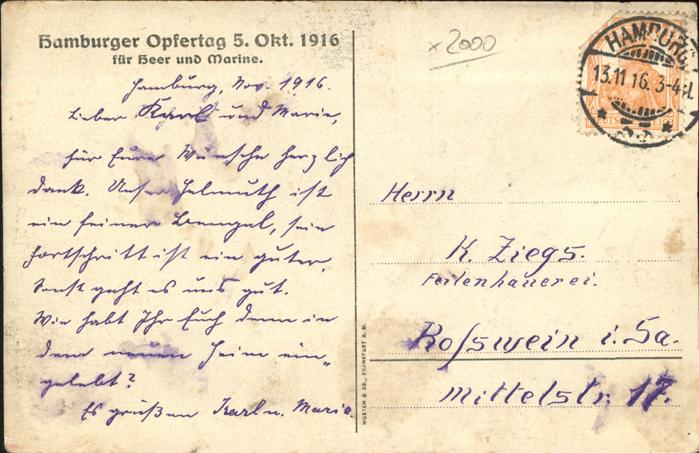 Hamburger Opfertag 5. Okt. 1916
für Heer und Marine.
Hamburg, Nov. 1916.
Lieber Karl und Marie,
für Eure Wünsche herzlich
dank. Unser Helmuth ist
ein feiner Bengel, sein
fortschritt ist ein guter,
sonst geht es uns gut.
Wie habt Ihr Euch denn in
dem neuen Heim ein-
gelebt?
Es grüßen Karl u. Marie.
x2000
HAMBURG
13.11.16. 3-4 N.
Herrn
K. Ziegs.
Feilenhauerei.
Rosswein i. Sa.
Mittelstr. 17.
WÜSTEN & CO., FRANKFURT A. M.